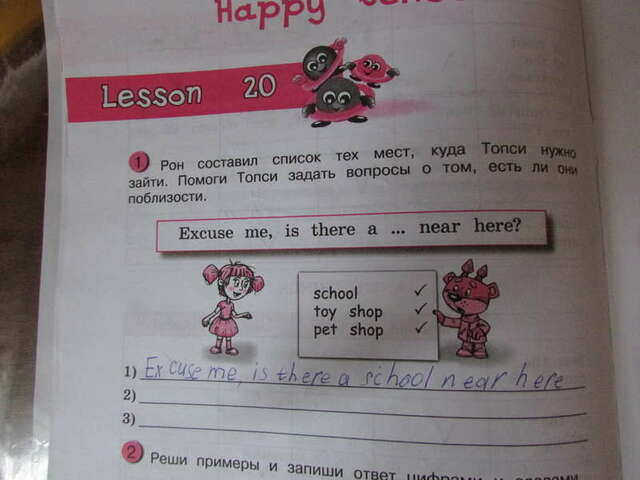 Happy
Lesson 20
1 Рон составил список тех мест, куда Топси нужно
зайти. Помоги Топси задать вопросы о том, есть ли они
поблизости.
Excuse me, is there a ... near here?
school ✓
toy shop ✓
pet shop ✓
1) Excuse me, is there a school near here
2)
3)
2 Реши примеры и запиши ответ цифрами и словами